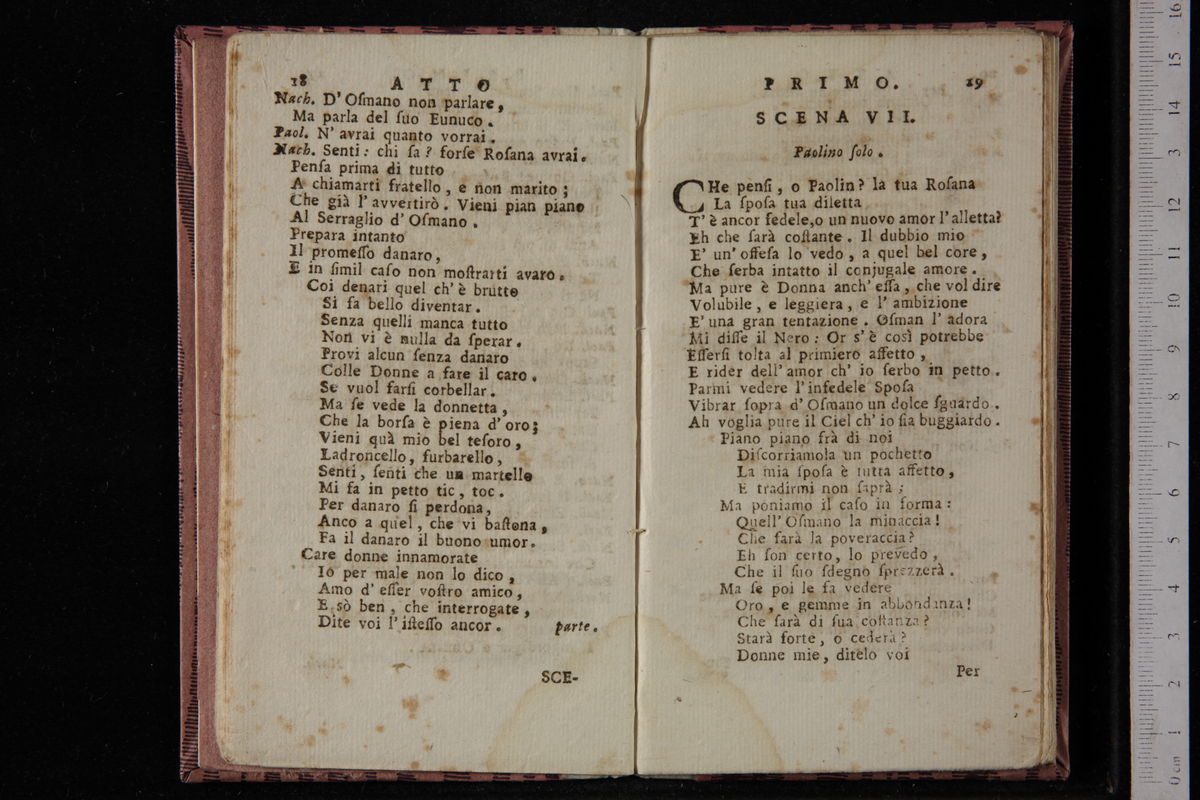 18 ATTO
Nach. D' Oſmano non parlare,
Ma parla del ſuo Eunuco.
Paol. N' avrai quanto vorrai.
Nach. Senti: chi ſa? forſe Roſana avrai.
Penſa prima di tutto
A chiamarti fratello, e non marito;
Che già l' avvertirò. Vieni pian piano
Al Serraglio d' Oſmano.
Prepara intanto
Il promeſſo danaro,
E in ſimil caſo non moſtrarti avaro.
Coi denari quel ch' è brutto
Si fa bello diventar.
Senza quelli manca tutto
Non vi è nulla da ſperar.
Provi alcun ſenza danaro
Colle Donne a fare il caro.
Se vuol farſi corbellar.
Ma ſe vede la donnetta,
Che la borſa è piena d' oro;
Vieni quà mio bel teſoro,
Ladroncello, furbarello,
Senti, ſenti che un martello
Mi fa in petto tic, toc.
Per danaro ſi perdona,
Anco a quel, che vi baſtona,
Fa il danaro il buono umor.
Care donne innamorate
Io per male non lo dico,
Amo d' eſſer voſtro amico,
E sò ben, che interrogate,
Dite voi l' iſteſſo ancor. parte.
SCE-
PRIMO. 19
SCENA VII.
Paolino ſolo.
CHe penſi, o Paolin? la tua Roſana
La ſpoſa tua diletta
T' è ancor fedele, o un nuovo amor l' alletta?
Eh che ſarà coſtante. Il dubbio mio
E' un' offeſa lo vedo, a quel bel core,
Che ſerba intatto il conjugale amore.
Ma pure è Donna anch' eſſa, che vol dire
Volubile, e leggiera, e l' ambizione
E' una gran tentazione. Oſman l' adora
Mi diſſe il Nero: Or s' è così potrebbe
Eſſerſi tolta al primiero affetto,
E rider dell' amor ch' io ſerbo in petto.
Parmi vedere l' infedele Spoſa
Vibrar ſopra d' Oſmano un dolce ſguardo.
Ah voglia pure il Ciel ch' io ſia buggiardo.
Piano piano frà di noi
Diſcorriamola un pochetto
La mia ſpoſa è tutta affetto,
E tradirmi non ſaprà;
Ma poniamo il caſo in forma:
Quell' Oſmano la minaccia!
Che farà la poveraccia?
Eh ſon certo, lo prevedo,
Che il ſuo ſdegno ſprezzerà.
Ma ſe poi le fa vedere
Oro, e gemme in abbondanza!
Che ſarà di ſua coſtanza?
Starà forte, o cederà?
Donne mie, ditelo voi
Per